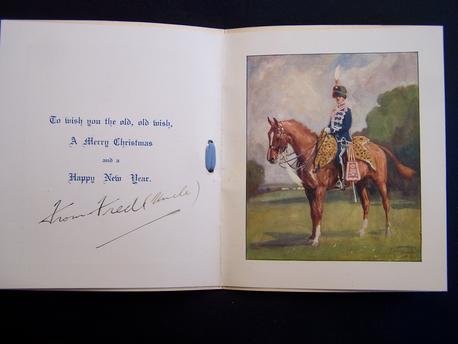 To wish you the old, old wish,
A Merry Christmas
and a
Happy New Year.
From Fred (Uncle)